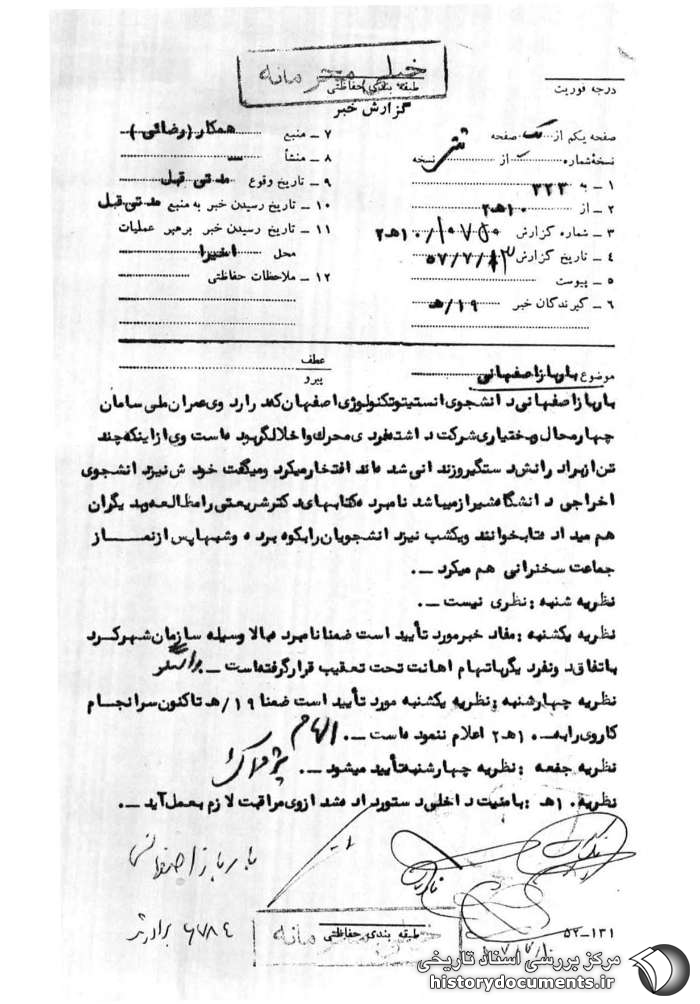 خیلی محرمانه
طبقه بندی حفاظتی
گزارش خبر
درجه فوریت
صفحه یکم از یک صفحه
نسخه شماره از نسخه
۱ ـ به ۳۲۳
۲ ـ از ۱۰هـ۲
۳ ـ شماره گزارش
۴ ـ تاریخ گزارش
۵ ـ پیوست
۶ ـ گیرندگان خبر ۱۹/هـ
۷ ـ منبع همکار (رضائی)
۸ ـ منشأ
۹ ـ تاریخ وقوع مدتی قبل
۱۰ ـ تاریخ رسیدن خبر به منبع مدتی قبل
۱۱ ـ تاریخ رسیدن خبر برهبر عملیات
محل اخیرا
۱۲ ـ ملاحظات حفاظتی
عطف
پیرو
موضوع بارباز اصفهانی
بارباز اصفهانی دانشجوی انستیتو تکنولوژی اصفهان که در اردوی عمران ملی سامان
چهارمحال و بختیاری شرکت داشته فردی محرک و اخلالگر بوده است وی از اینکه چند
تن از برادرانش دستگیر و زندانی شده اند افتخار میکرد و میگفت خودش نیز دانشجوی
اخراجی دانشگاه شیراز میباشد نامبرده کتابهای دکتر شریعتی را مطالعه و بدیگران
هم میداد تا بخوانند و یکشب نیز دانشجویان را بکوه برده و شبها پس از نماز
جماعت سخنرانی هم میکرد ـ.
نظریه شنبه : نظری نیست ـ.
نظریه یکشنبه : مفاد خبر مورد تأیید است ضمنا نامبرده بالا وسیله سازمان شهرکرد
باتفاق دو نفر دیگر باتهام اهانت تحت تعقیب قرار گرفته است ـ
نظریه چهارشنبه : نظریه یکشنبه مورد تأیید است ضمنا ۱۹/هـ تاکنون سرانجام
کار وی را به ۱۰هـ۲ اعلام ننموده است ـ. الهام
نظریه جمعه : نظریه چهارشنبه تأیید میشود ـ. پژواک
نظریه ۱۰هـ : بامنیت داخلی دستور داده شد از وی مراقبت لازم بعمل آید ـ.
بارباز اصفهانی
طبقه بندی حفاظتی
۵۲-۱۳۱
مرکز بررسی اسناد تاریخی
historydocuments.ir